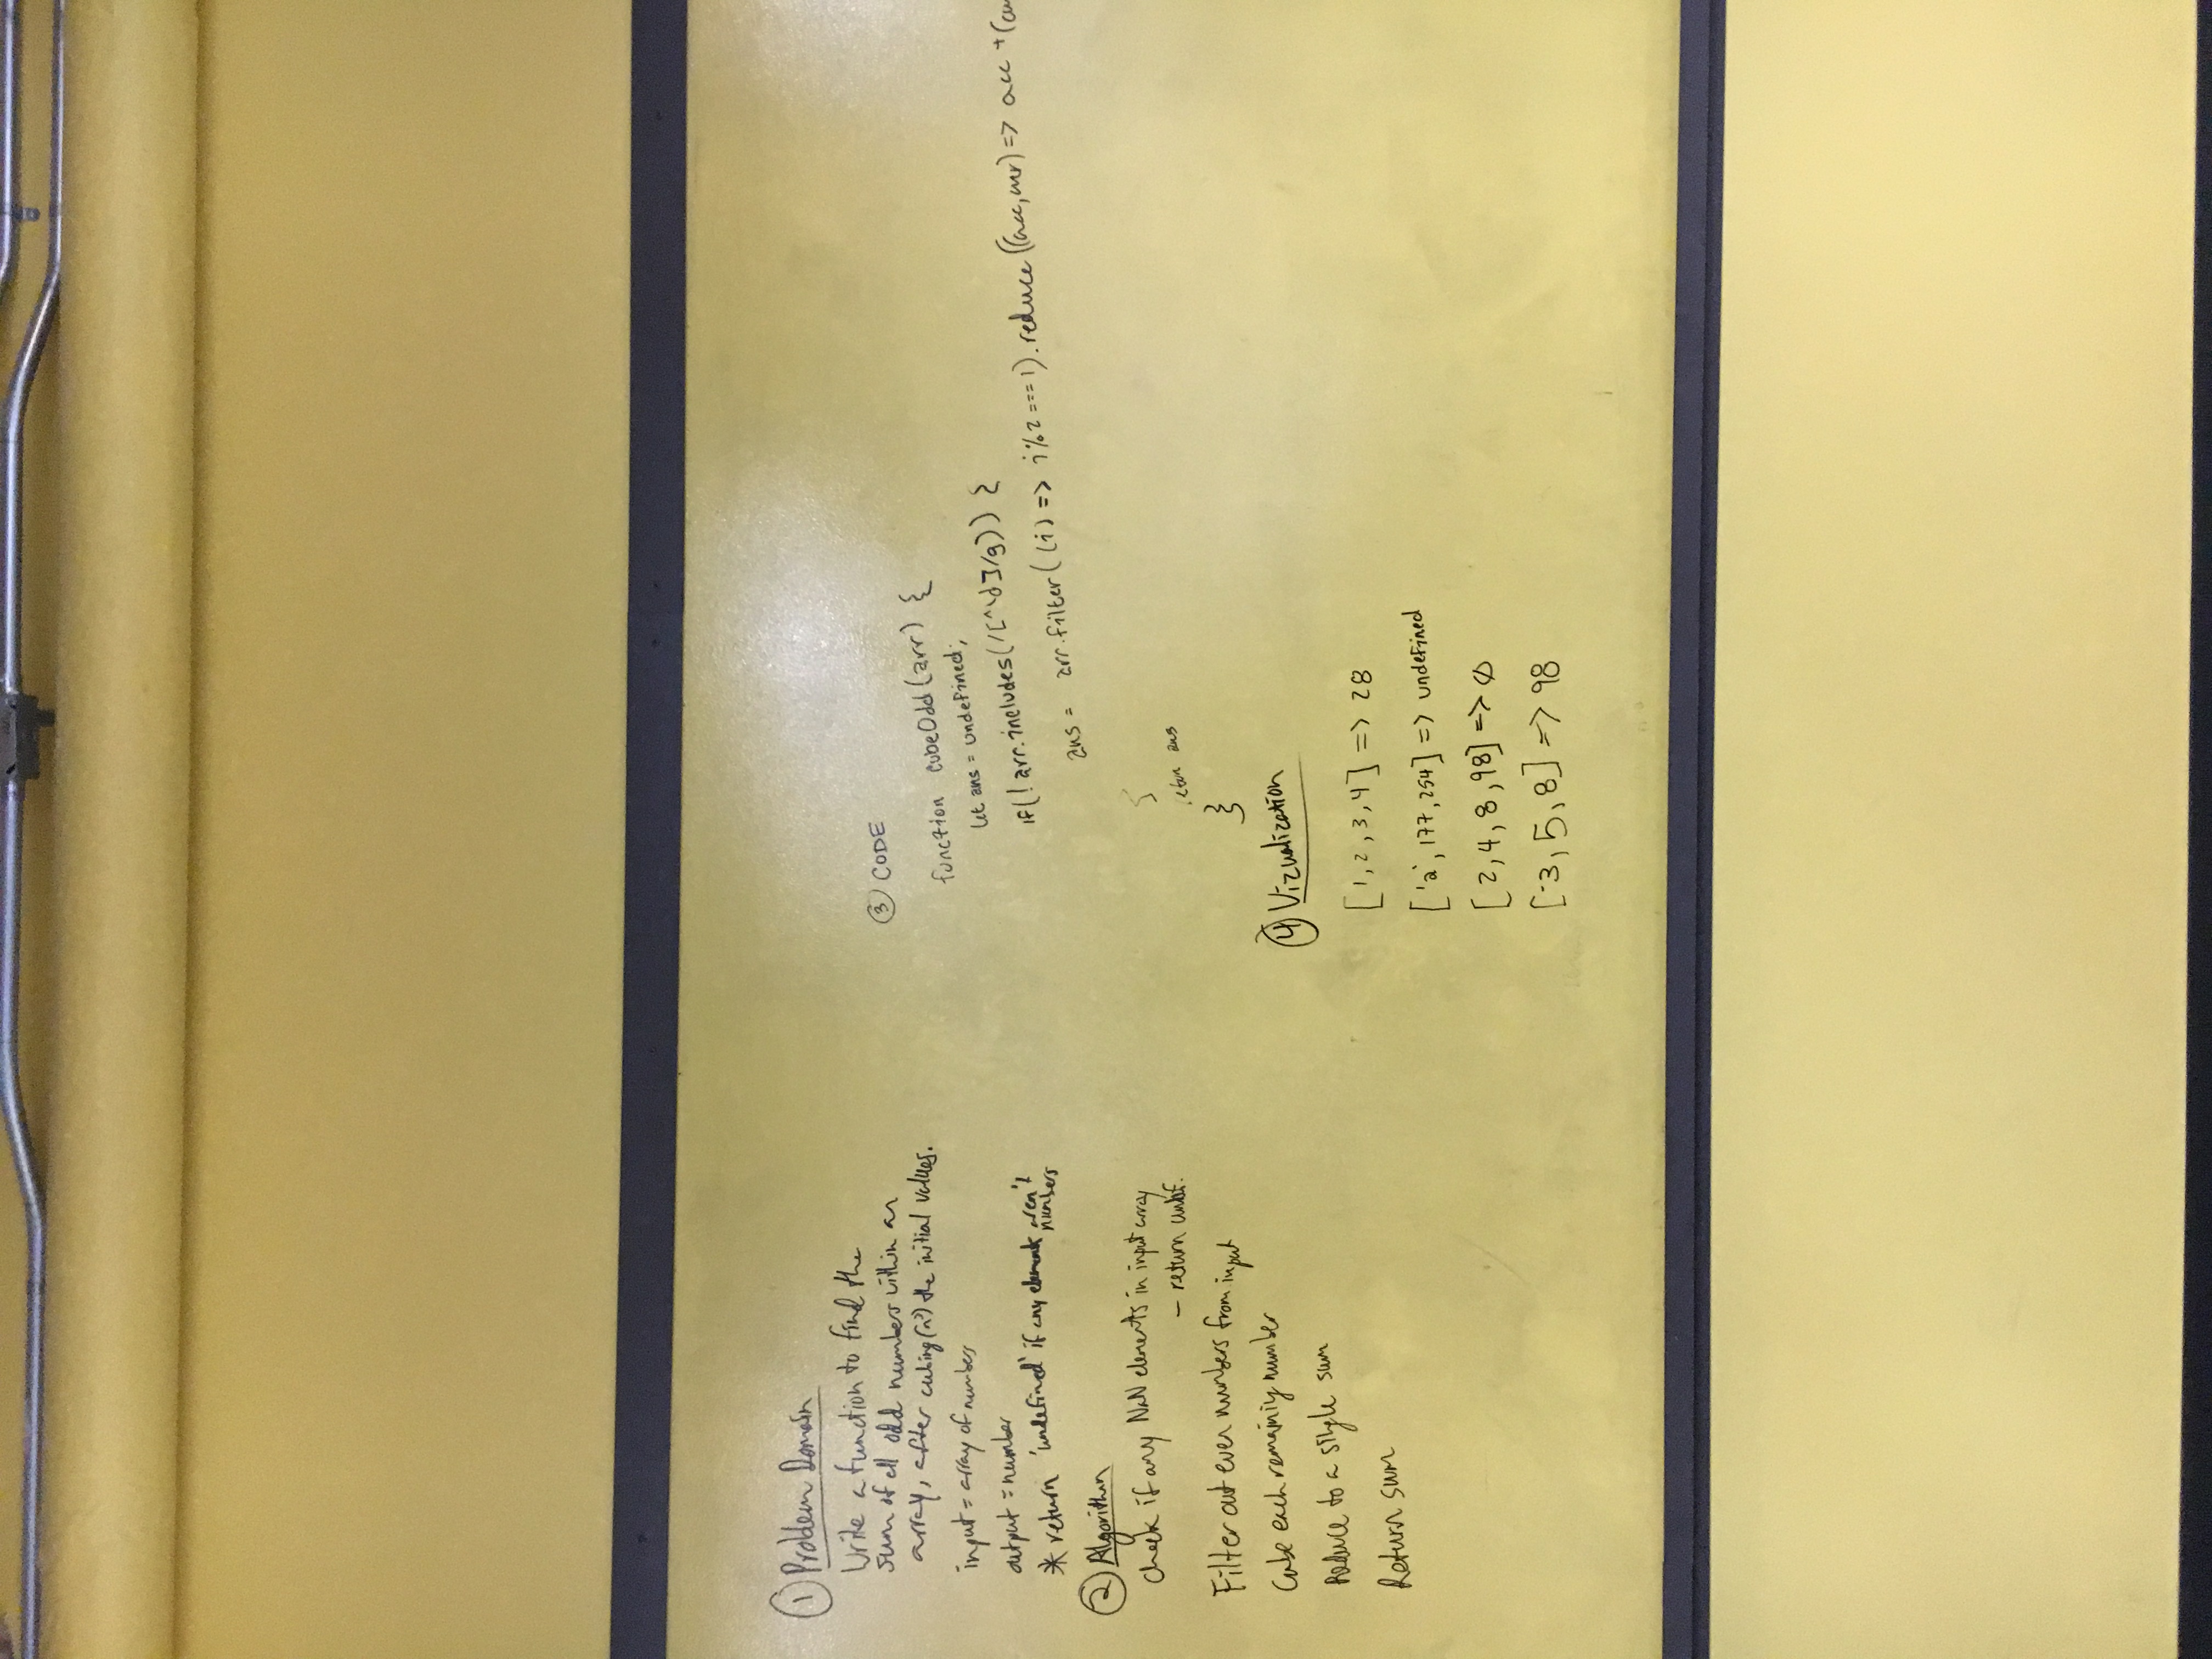 ① Problem Domain
Write a function to find the
sum of all odd numbers within an
array, after cubing (n³) the initial values.
input = array of numbers
output = number
* return 'undefined' if any elements aren't
numbers
② Algorithm
Check if any NaN elements in input array
— return undef.
Filter out even numbers from input
Cube each remaining number
Reduce to a single sum
Return sum
③ CODE
function cubeOdd(arr) {
let ans = undefined;
if(! arr.includes(/[^\d]/g)) {
ans = arr.filter((i) => i%2===1).reduce((acc,curr) => acc + (cu
}
return ans
}
④ Vizualization
[1,2,3,4] => 28
['a', 177,254] => undefined
[2,4,8,98] => Ø
[-3,5,8] => 98